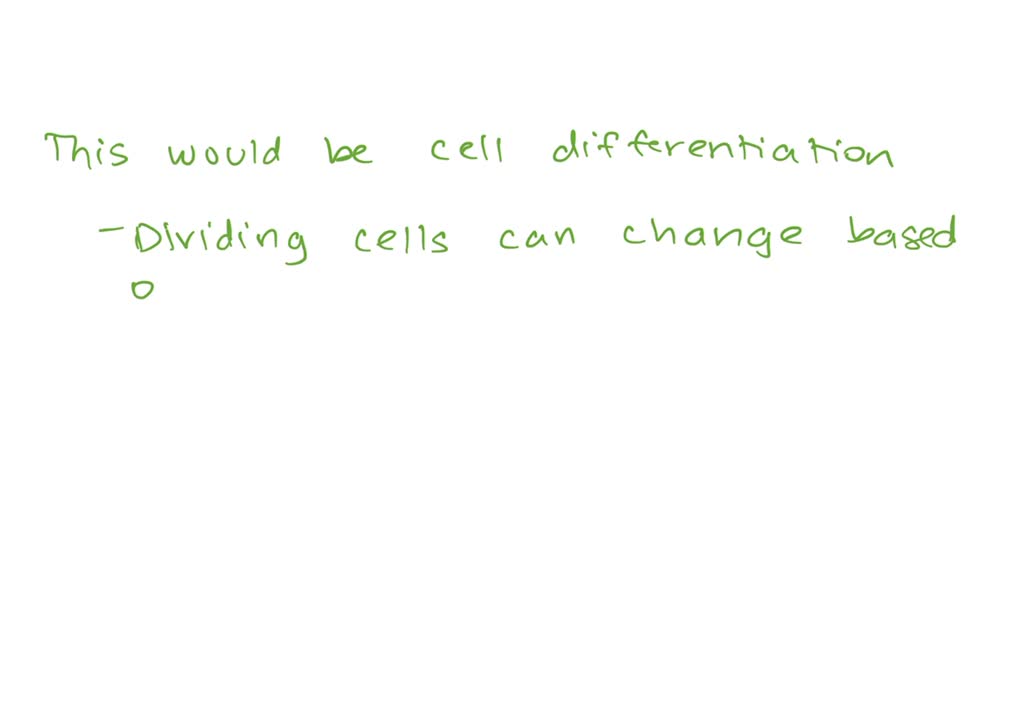 This would be cell differentiation
- Dividing cells can change based
o